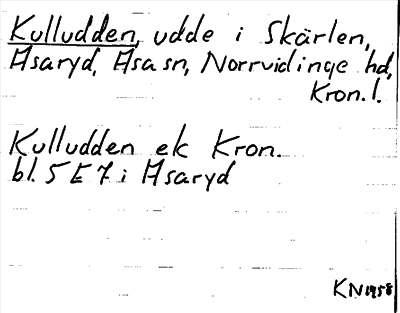 Kulludden, udde i Skärlen,
Asaryd, Asa sn, Norrvidinge hd,
Kron. l.
Kulludden ek Kron.
bl. 5 E 7 i Asaryd
KN 1958